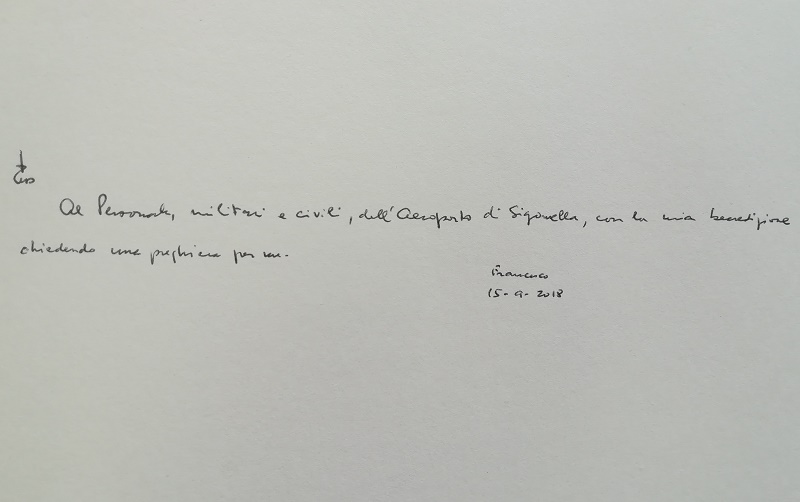 Al Personale, militari e civili, dell'Aeroporto di Sigonella, con la mia benedizione
chiedendo una preghiera per me.
Francesco
15-9-2018